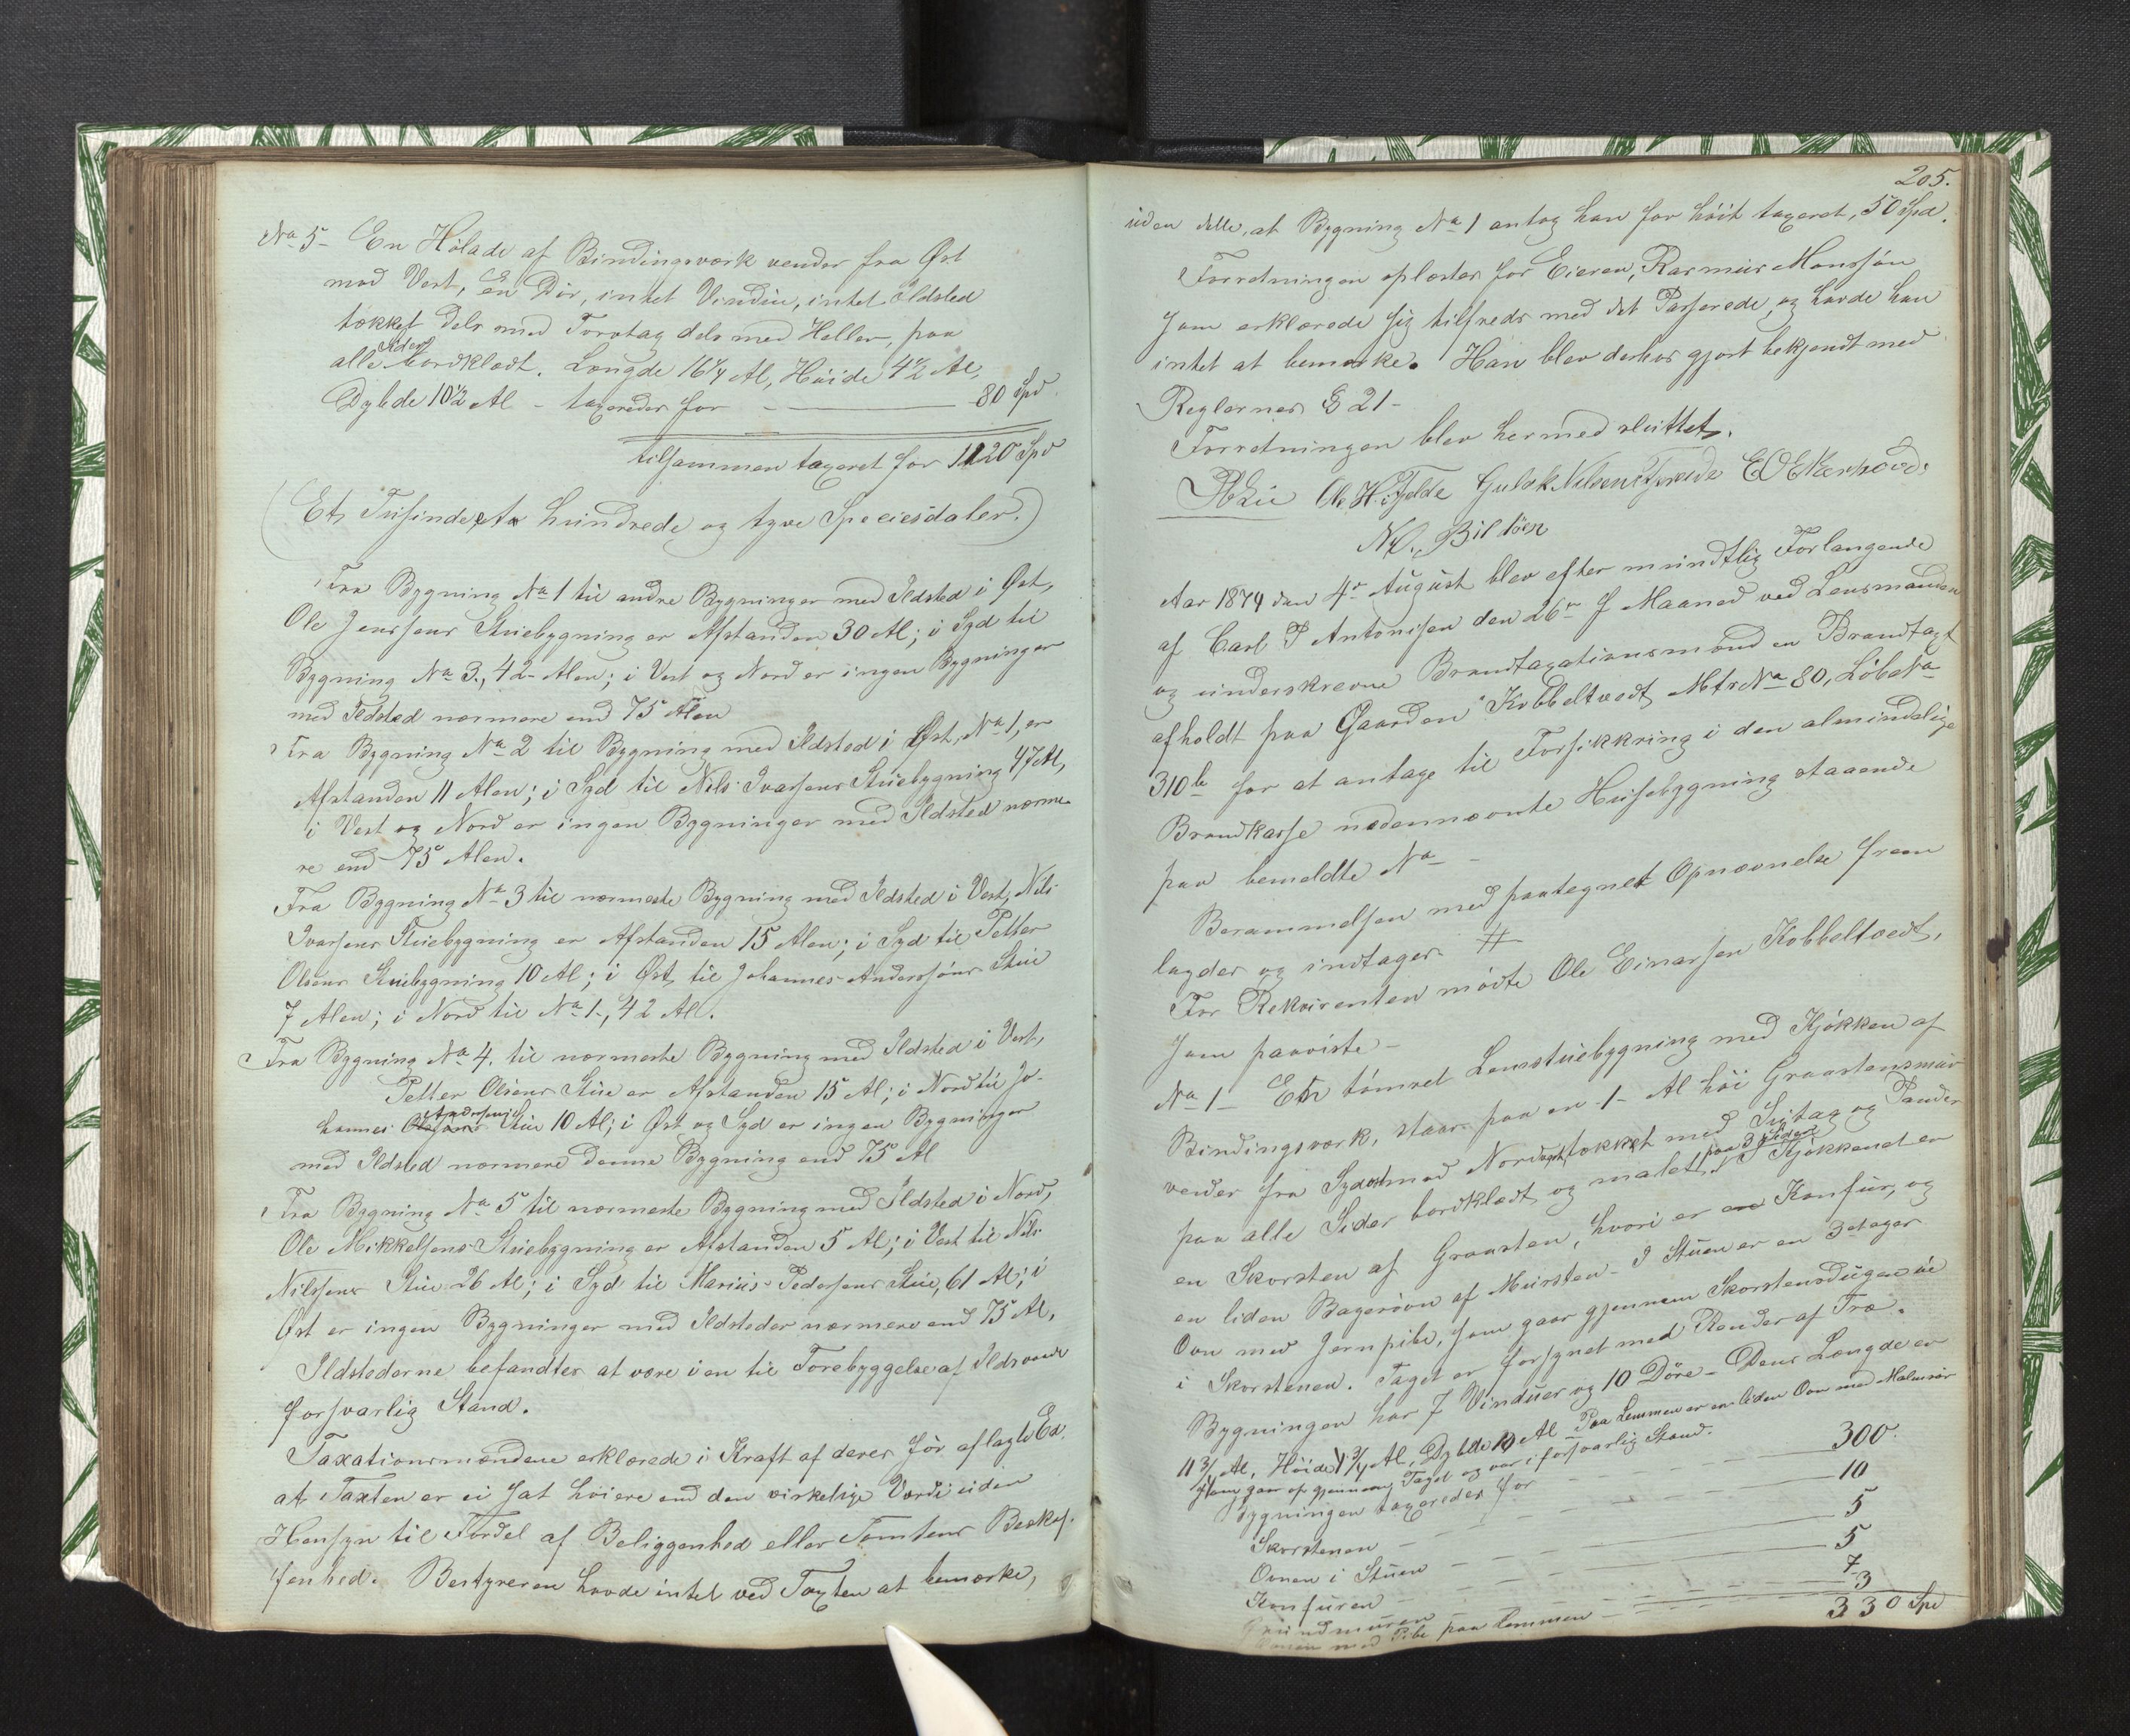 No 5 - En Hölade af Bindingsværk vender fra Øst
mod Vest, en Dør, intet Vindue, intet Ildsted
tækket dels med Torvtag dels med Heller, paa
alle Sider bordklædt. Længde 16¼ Al, Høide 4½ Al,
Dybde 10½ Al - taxeredes for - 80 Spd
tilsammen taxeret for 1120 Spd
(Et Tusinde et hundrede og tyve Speciesdaler.)
Fra Bygning No 1 til andre Bygninger med Ildsted i Øst,
Ole Jensens Stuebygning er Afstanden 30 Al; i Syd til
Bygning No 3, 42 Alen; i Vest og Nord er ingen Bygninger
med Ildsted nærmere end 75 Alen
Fra Bygning No 2 til Bygning med Ildsted i Øst, No 1, er
Afstanden 11 Alen; i Syd til Nils Ivarsens Stuebygning 47 Al,
i Vest og Nord er ingen Bygninger med Ildsted nærme-
re end 75 Alen.
Fra Bygning No 3 til nærmeste Bygning med Ildsted i Vest, Nils
Ivarsens Stuebygning er Afstanden 15 Alen; i Syd til Petter
Olsens Stuebygning 10 Al; i Øst til Johannes Anderssöns Stue
7 Alen; i Nord til No 1, 42 Al.
Fra Bygning No 4. til nærmeste Bygning med Ildsted i Vest,
Petter Olsens Stue er Afstanden 15 Al; i Nord til Jo-
hannes Andersens Stue 10 Al; i Øst og Syd er ingen Bygninger
med Ildsted nærmere denne Bygning end 75 Al
Fra Bygning No 5 til nærmeste Bygning med Ildsted i Nord,
Ole Mikkelsens Stuebygning er Afstanden 5 Al; i Vest til Nils
Nilssens Stue 26 Al; i Syd til Marius Pedersens Stue, 61 Al; i
Øst er ingen Bygninger med Ildsteder nærmere end 75 Al.
Ildstederne befandtes at være i en til Forebyggelse af Ildsvaade
forsvarlig Stand.
Taxationsmændene erklærede i Kraft af deres før aflagte Ed
at Taxten er ei sat høiere end den virkelige Værdi uden
Hensyn til Fordel af Beliggenhed eller Tomtens Beskaf-
fenhed. Bestyreren havde intet ved Taxten at bemærke,
205.
uden dette, at Bygning No 1 antog han for høit taxeret, 50 Spd.
Forretningen oplæstes for Eieren, Rasmus Monssön
som erklærede sig tilfreds med det Passerede, og havde han
intet at bemærke. Han blev derhos gjort bekjendt med
Reglernes § 21 -
Forretningen blev hermed sluttet.
Ole H. Fjelde Gulak Nilsen
N. Bildöen
Aar 1874 den 4de August blev efter mundtlig Forlangende
af Carl P Antonisen den 26de f Maaned ved Lensmanden
og underskrevne Brandtaxationsmænd en Brandtaxt
afholdt paa Gaarden Kobbeltvedt Matr No 80, Löbe No
310b for at antage til Forsikkring i den almindelige
Brandkasse nedennævnte Huusebygning staaende
paa bemeldte No -
Berammelsen med paategnet Opnævnelse frem
lagdes og indtages #
For Rekvirenten mødte Ole Einarsen Kobbeltvedt,
som paaviste -
No 1 - En tömret Lemstuebygning med Kjökken af
Bindingsværk, staar paa en 1 Al höi Graastensmur
vender fra Sydost mod Nordvest tækket med Sutag og Pander
paa alle Sider bordklædt og malet paa 3 Sider. I Kjökkenet er
en Skorsten af Graasten, hvori er en Komfur, og
en liden Bagerovn af Mursten - I Stuen er en 3 etages
Ovn med Jernpibe, som gaar gjennem Skorstensdugen ud
i Skorstenen. Taget er forsynet med Render af Træ.
Bygningen har 7 Vinduer og 10 Döre - Dens Længde er
11¾ Al, Høide ¾ Al, Dybde 10 Al - Paa Lemmen er en liden Ovn med Malmrör
som gaar op gjennem Taget og var i forsvarlig Stand.
Bygningen taxeredes for - 300
Skorstenen - 10
Ovnen i Stuen - 5
Komfuren - 5
Grundmuren - 7
Ovnen med Pibe paa Lemmen - 3
330 Spd